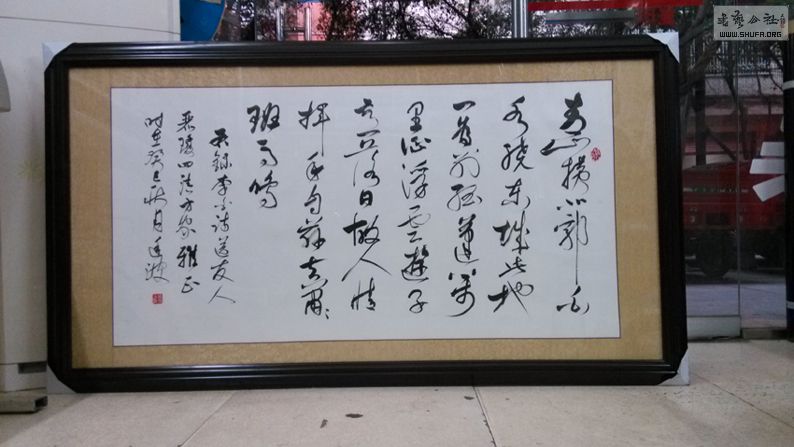 青山横北郭白
水绕东城此地
一为别孤蓬万
里征浮云游子
意落日故人情
挥手自兹去萧萧
班马鸣
录李白诗送友人
方家雅正
时在癸巳秋月
书艺公社
WWW.SHUFA.ORG